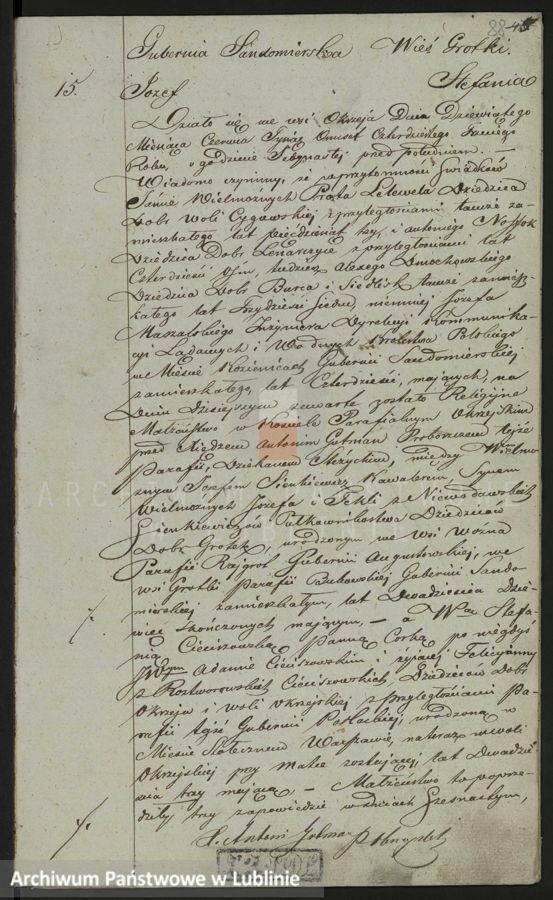 88
Gubernia Sandomierska Wieś Grotki.
15. Jozef Stefania
Działo się we wsi Okrzeja Dnia Dziewiątego
Miesiąca Czerwca Tysiąc Ośmset Czterdziestego trzeciego
Roku, o godzinie przed południem.
Wiadomo czynimy, że w przytomności Świadków
Jaśnie Wielmożnych Prota Lelewela Dziedzica
Dobr Woli Cygowskiej z przyległościami tamże za-
mieszkałego lat pięćdziesiąt trzy, i Antoniego Nossok
Dziedzica Dobr z przyległościami lat
Czterdzieści tudzież Alexego Dmochowskiego
Dziedzica Dobr Burca i Siedlisk tamże zamiesz-
kałego lat Trzydzieści siedm, niemniej Jozefa
Maszalskiego Inżyniera Dyrekcyi Kommunika-
cyi Lądowych i Wodnych Królestwa Polskiego
w Mieście Kozienicach Gubernii Sandomierskiej
zamieszkałego, lat Czterdzieści, mających, na
Dniu Dzisiejszym zawarte zostało Religijne
Małżeństwo w Kościele Parafialnym Okrzejskim
przed Xiędzem Antonim Gutman Proboszczem tejże
Parafii, Dziekanem między Wielmo
żnym Jozefem Sienkiewicz Kawalerem, Synem
Wielmożnych Jozefa i Tekli z
Sienkiewiczów Pułkownikostwa Dziedziców
Dobr Grotek, urodzonym we wsi Wozna
Parafii Rajgrod Gubernii Augustowskiej, we
wsi Grotki Parafii Bukowskiej Gubernii Sando
mierskiej zamieszkałym, lat Dwadzieścia Dzie-
więć skończonych mającym, – a Wą Stefa-
nią Cieciszowską Panną Corką po niegdyś
JWnym Adamie Cieciszowskim i żyjącej Felicyanny
z Roztworowskich Cieciszowskich Dziedziców Dobr
Okrzeja i Woli Okrzejskiej z przyległościami Pa-
rafii tejże Gubernii Podlaskiej, urodzoną w
Mieście Stołecznem Warszawie, na teraz w Woli
Okrzejskiej przy Matce zostającej, lat Dwadzie-
ścia trzy mającą – Małżeństwo to poprze-
dziły trzy zapowiedzie w dniach Szesnastym,
X. Antoni Gutman
Archiwum Państwowe w Lublinie